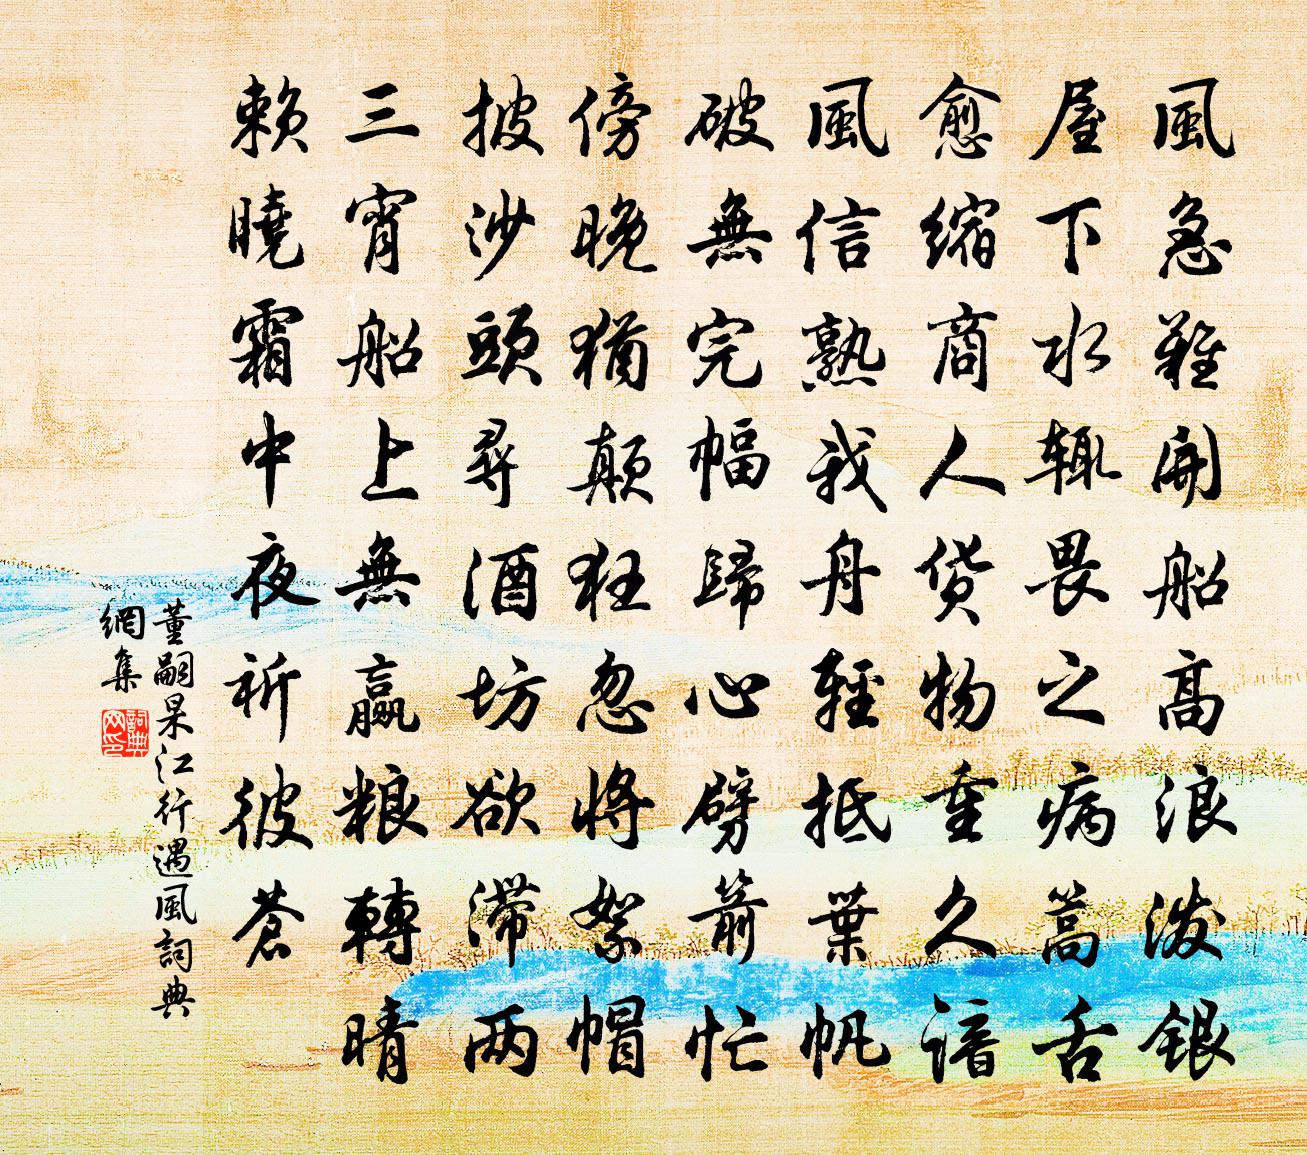 風急難開船高浪潑銀
屋下水輒畏之病篙舌
愈縮商人貨物重久諳
風信熟我舟輕抵葉帆
破無完幅歸心劈箭忙
傍晚猶顛狂忽將絮帽
披沙頭尋酒坊欲滯两
三宵船上無贏粮轉晴
賴曉霜中夜祈彼蒼
董嗣杲江行遇風詞典
網集
詞典
网印